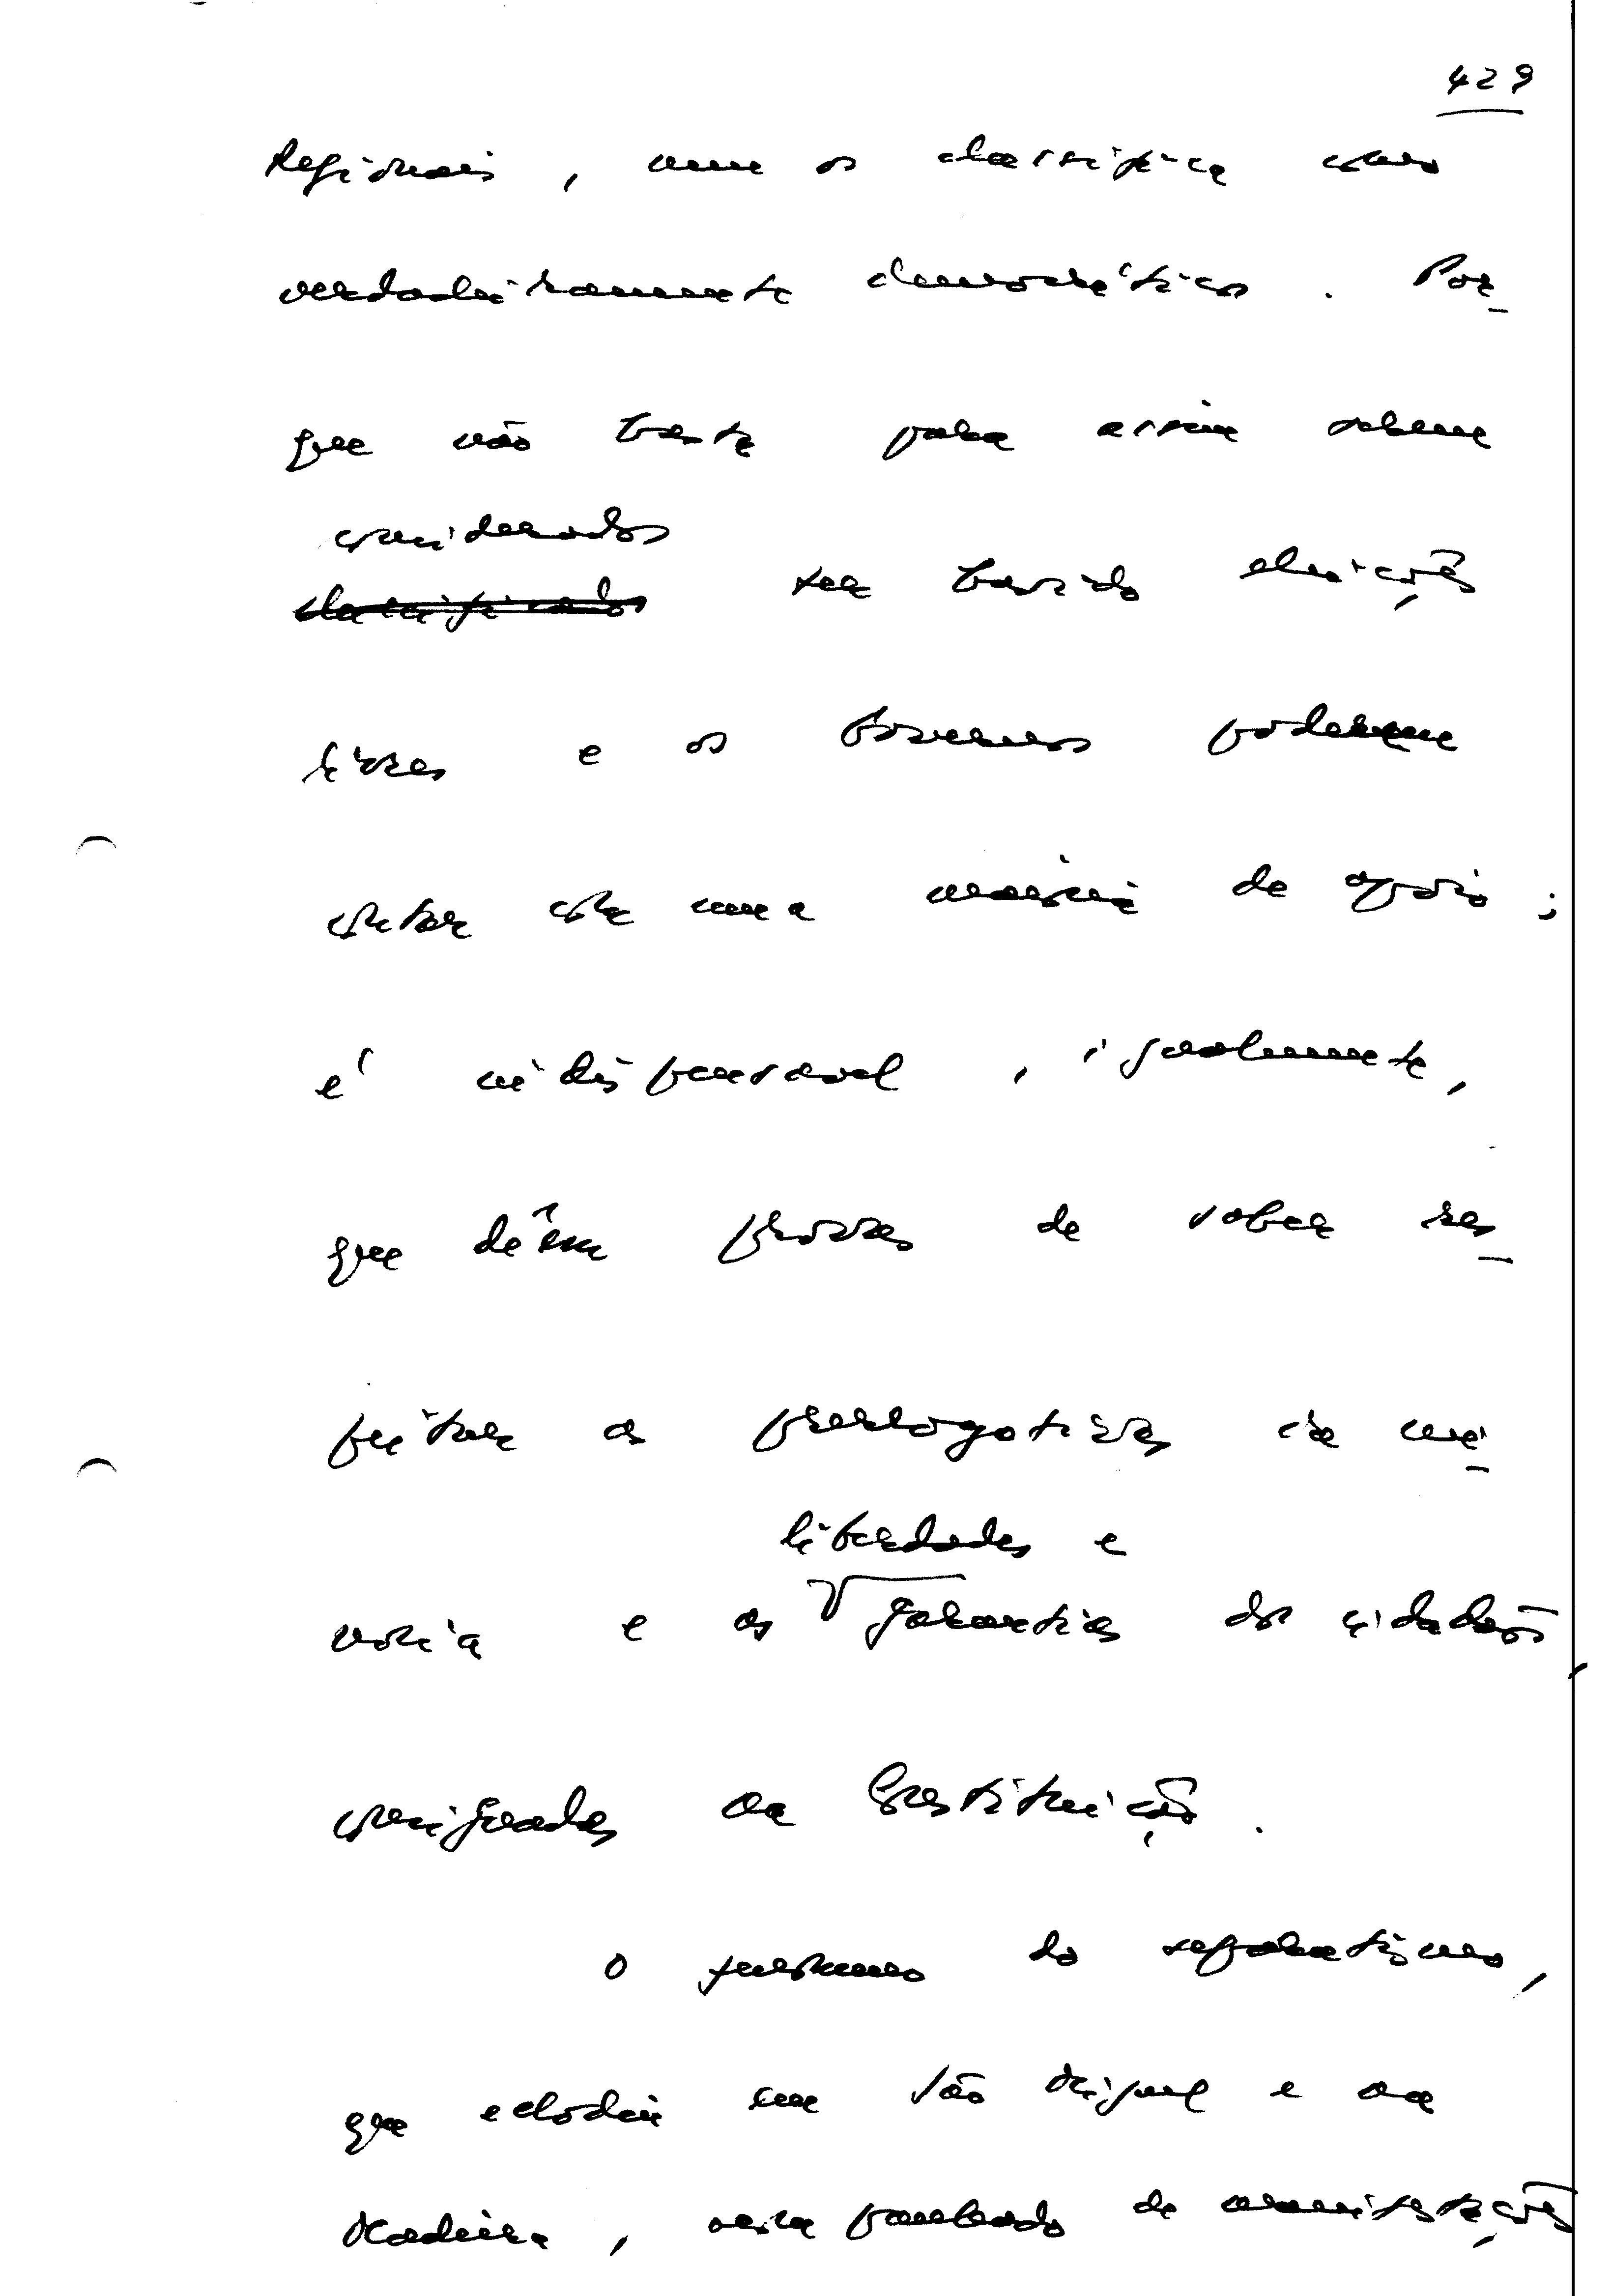 429
Regionais, nem os classifica como
verdadeiramente democráticos. Por-
que não basta para assim serem
considerados
classificados ter havido eleições
livres e os Governos poderem
contar com uma maioria de apoio;
é indispensável, igualmente,
que dêem provas de saber res-
peitar as prerrogativas da mi-
liberdades e
noria e as garantias dos cidadãos,
consignadas na Constituição.
O fenómeno do separatismo,
que eclodiu em São Miguel e na
Madeira, acompanhado de manifestações